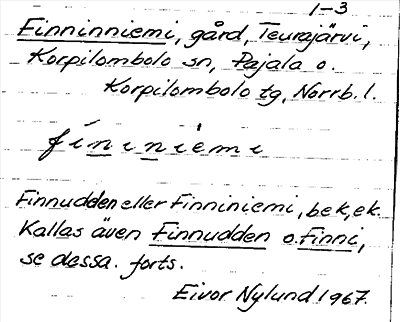 1-3
Finninniemi, gård, Teurajärvi,
Korpilombolo sn, Pajala o.
Korpilombolo tg, Norrb. l.
fíniniemi
Finnudden eller Finniniemi, bek, ek.
Kallas även Finnudden o. Finni,
se dessa. forts.
Eivor Nylund 1967.